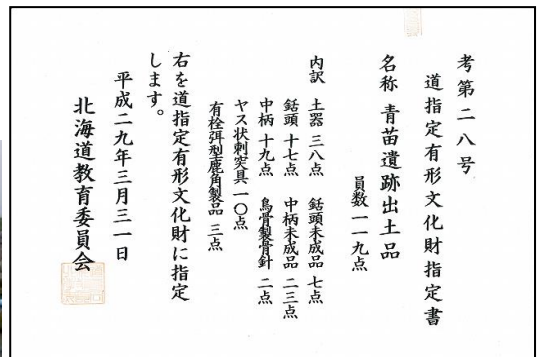 考第二八号
道指定有形文化財指定書
名称 青苗遺跡出土品
員数 一一九点
内訳 土器 三八点 銛頭未成品 七点
銛頭 十七点 中柄未成品 二三点
中柄 十九点 鳥骨製骨針 二点
ヤス状刺突具一〇点
有栓弭型鹿角製品 三点
右を道指定有形文化財に指定
します。
平成二九年三月三一日
北海道教育委員会